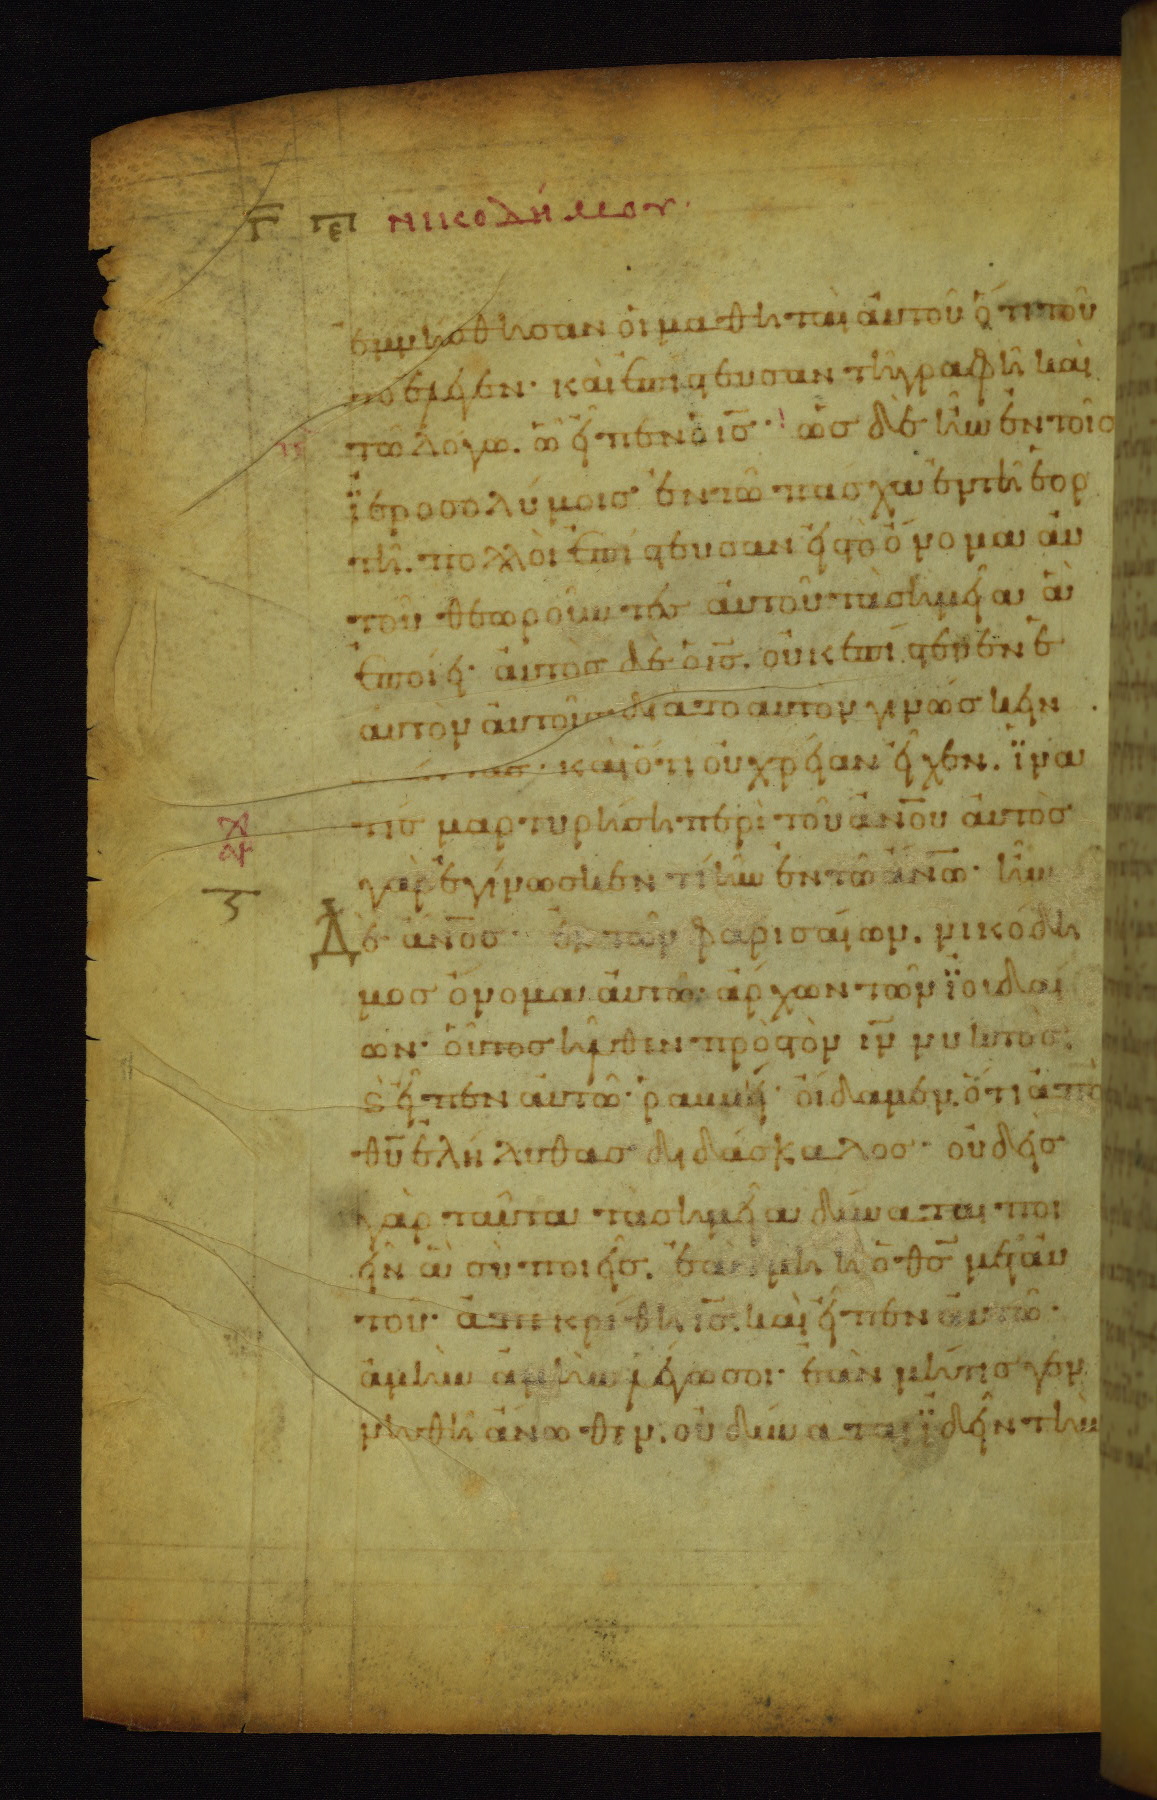 Γ πε νικοδήμου·
ἐμνήσθησαν οἱ μαθηται ἀυτοῦ ὅτι τοῦ
το ἔλεγεν· καὶ ἐπίστευσαν τῆ γραφῆ καὶ
τῶ λόγω. ῶ εἶπεν ὁ ισ· ὡσ δὲ ἦν ἐν τοῖσ
ϊεροσολύμοισ ἐν τῶ πάσχα ἐν τῆ ἑορ
τῆ. πολλοὶ ἐπίστευσαν εἰσ τὸ ὄνομα ἀυ
τοῦ θεωροῦντεσ ἀυτοῦ τὰ σημεῖα ἃ
ἐποίει· ἀυτὸσ δὲ ὁ ισ. οὐκ ἐπίστευεν ἑ
αυτὸν ἀυτοῖσ· δια το αυτον γινώσκειν
καὶ ὅτι οὐ χρείαν εἶχεν. ϊνα
τίσ μαρτυρήση περὶ τοῦ ἀνου ἀυτὸσ
γὰρ ἐγίνωσκεν τί ἦν ἐν τῶ ἀνω· ἦν
Δὲ ἀνοσ ἐκ τῶν φαρισαίων. νικόδη
μοσ ὄνομα ἀυτῶ· ἄρχων τῶν ϊουδαί
ων· οὗτοσ ἦλθεν πρὸσ τὸν ιν νυκτὸσ·
ϗ εἶπεν αυτῶ· ῥαββεί· οἴδαμεν. ὅτι ἀπὸ
θυ ἐλήλυθασ διδάσκαλοσ· οὐδεὶσ
γὰρ ταῦτα τὰ σημεῖα δύναται ποι
εῖν ἃ σὺ ποιεῖσ. ἐὰν μὴ ἦ ὁ θσ μετ ἀυ
τοῦ· ἀπεκρίθη ισ. καὶ εἶπεν ἀυτῶ·
ἀμὴν ἀμὴν λέγω σοι· ἐὰν μήτισ γεν
νηθῆ ἄνωθεν. οὐ δύναται ϊδεῖν τὴν